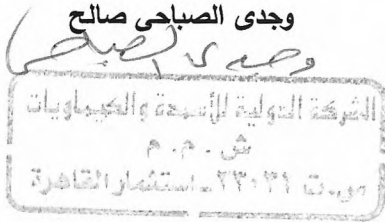 وجدى الصباحى صالح
وجدى الصباحى
الشركة الدولية للأسمدة والكيماويات
ش . م . م
س.ت ٢٣٠٣١ - استثمار القاهرة